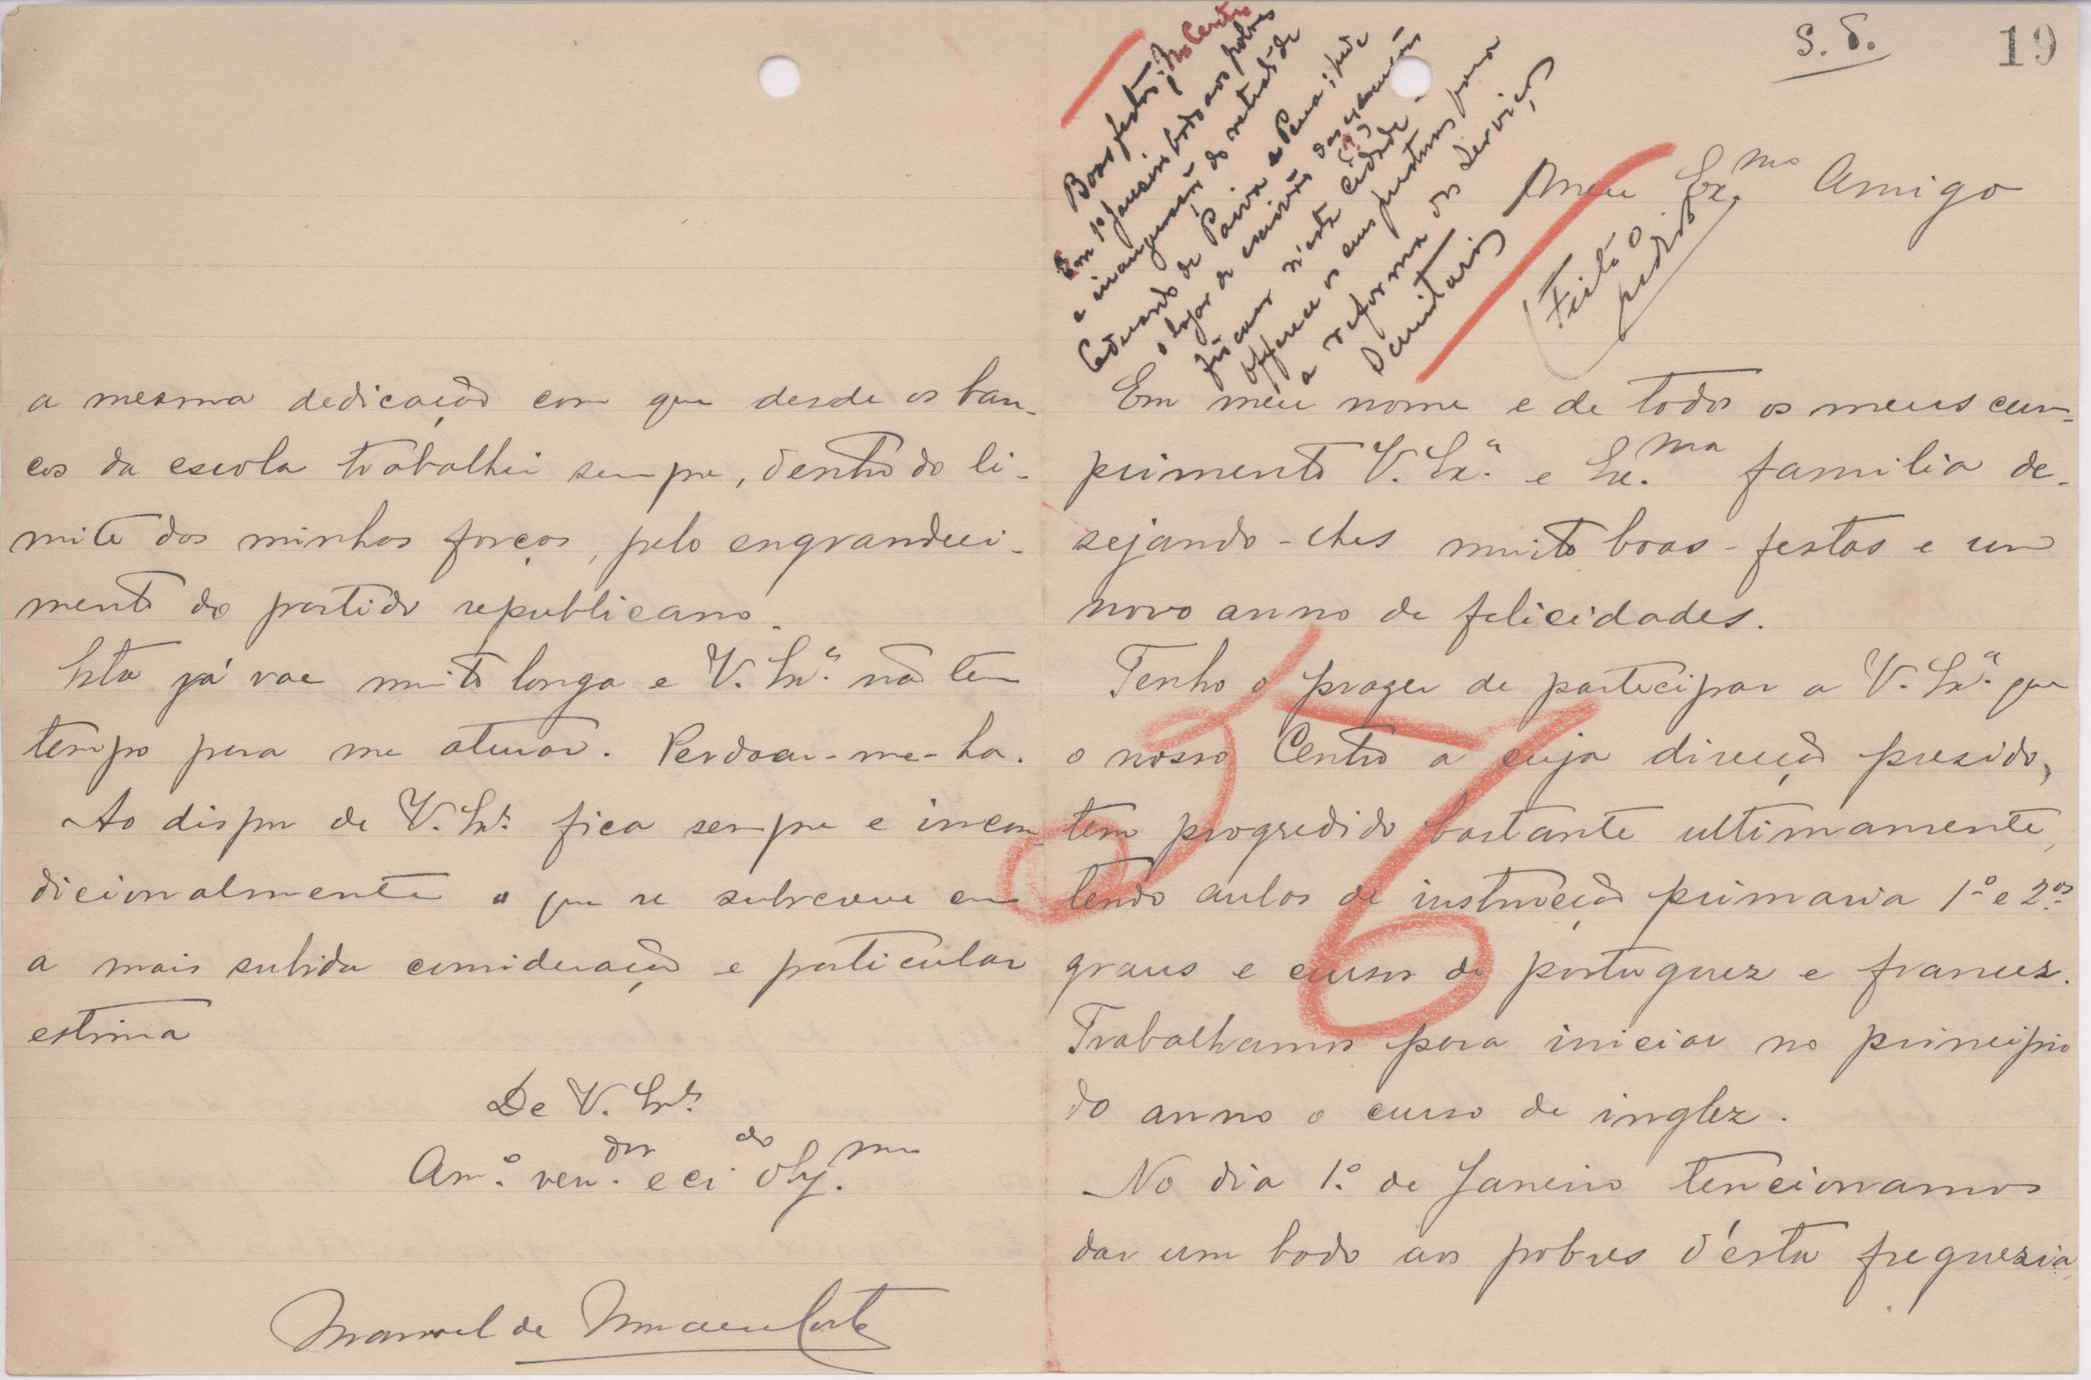 S. d.
19
Boas festas; No Centro
Em 1º Janeiro bodo aos pobres
e inauguração do retrato de
Eduardo de Paiva e Pena; pede
o logar de escrivão das execuções
fiscaes n'esta cidade -
Offerece os seus prestimos para
a reforma dos serviços
Sanitarios
Meu Ex.mo Amigo
Feito o
pedido
Em meu nome e de todos os meus cum-
primento V. Ex.ª e Ex.ma familia de-
sejando-lhes muito boas-festas e um
novo anno de felicidades.
Tenho o prazer de participar a V. Ex.ª que
o nosso Centro a cuja direcção presido,
tem progredido bastante ultimamente,
tendo aulas de instrucção primaria 1º e 2os
graus e curso de portuguez e francez.
Trabalhamos para iniciar no principio
do anno o curso de inglez.
No dia 1.º de Janeiro tencionamos
dar um bodo aos pobres d'esta freguezia
a mesma dedicação com que desde os ban-
cos da escola trabalhei sempre, dentro do li-
mite das minhas forças, pelo engrandeci-
mento do partido republicano.
Esta já vae muito longa e V. Ex.ª não tem
tempo para me aturar. Perdoar-me-ha.
Ao dispor de V. Ex.ª fica sempre e incon-
dicionalmente o que se subscreve com
a mais subida consideração e particular
estima
De V. Ex.ª
Am.º ven.dor e cr.do obg.mo
Manoel de
576